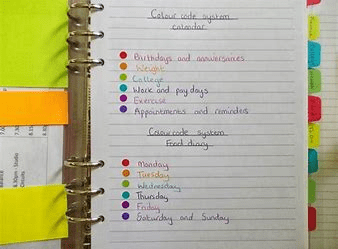 Colour code system
calendar
Birthdays and anniversaries
Weight
College
Work and pay days
Exercise
Appointments and reminders
Colour code system
Food diary
Monday
Tuesday
Wednesday
Thursday
Friday
Saturday and Sunday
8.30pm Studio